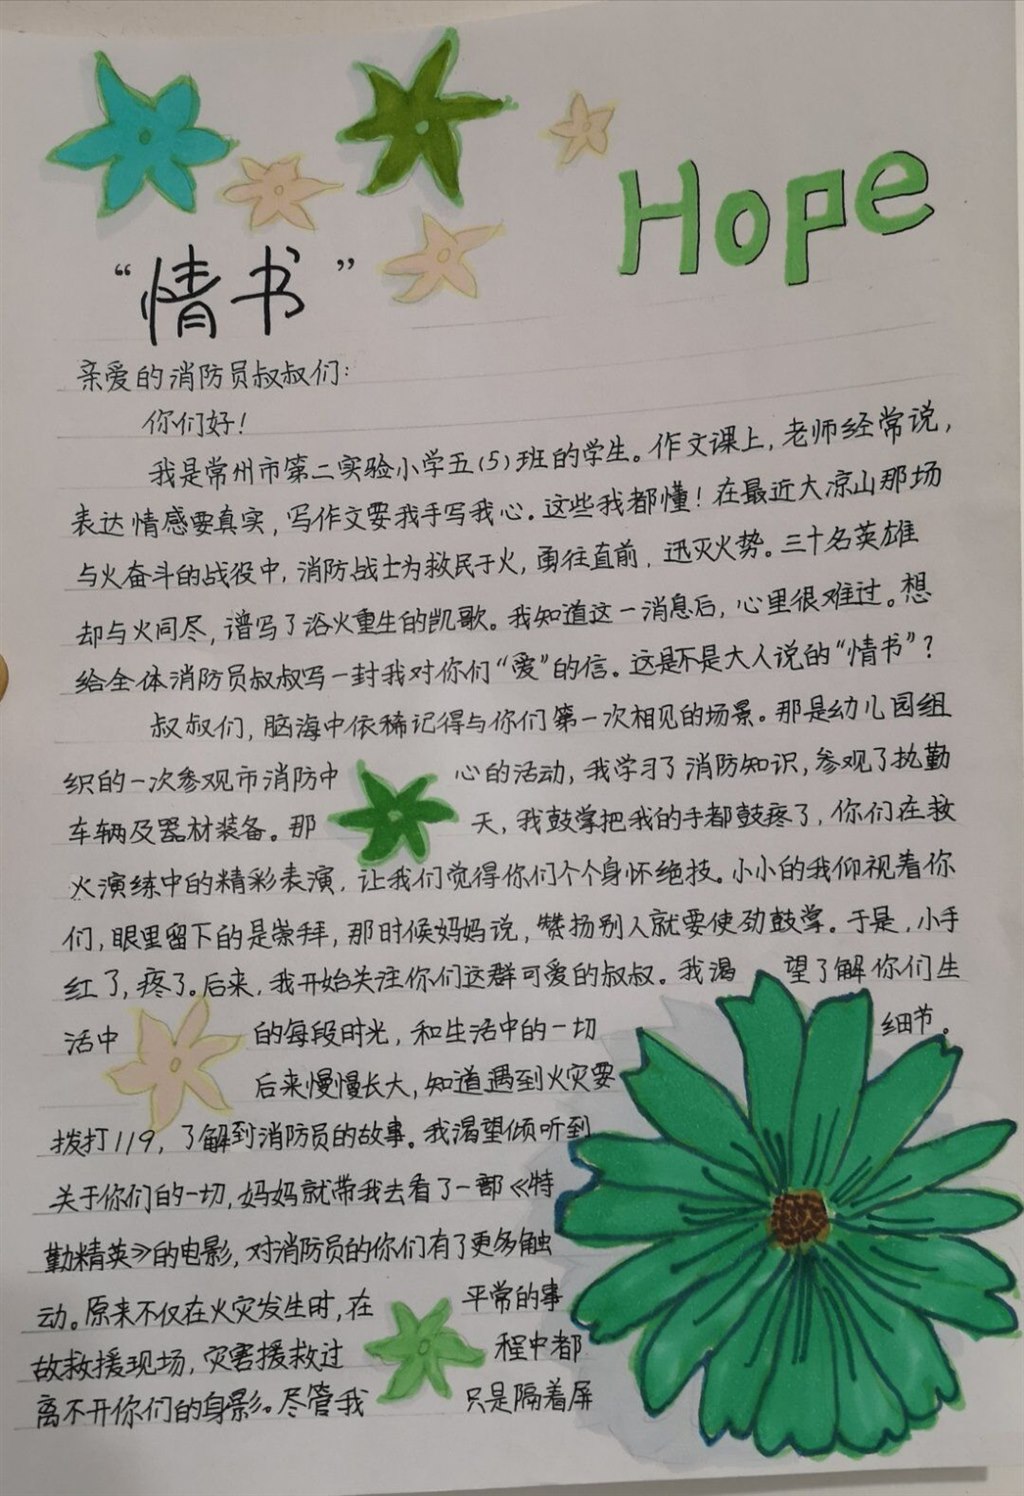 Hope
“情书”
亲爱的消防员叔叔们:
你们好!
我是常州市第二实验小学五(5)班的学生。作文课上,老师经常说,
表达情感要真实,写作文要我手写我心。这些我都懂!在最近大凉山那场
与火奋斗的战役中,消防战士为救民于火,勇往直前,迅灭火势。三十名英雄
却与火同尽,谱写了浴火重生的凯歌。我知道这一消息后,心里很难过。想
给全体消防员叔叔写一封我对你们“爱”的信。这是不是大人说的“情书”?
叔叔们,脑海中依稀记得与你们第一次相见的场景。那是幼儿园组
织的一次参观市消防中心的活动,我学习了消防知识,参观了执勤
车辆及器材装备。那天,我鼓掌把我的手都鼓疼了,你们在救
火演练中的精彩表演,让我们觉得你们个个身怀绝技。小小的我仰视着你
们,眼里留下的是崇拜,那时候妈妈说,赞扬别人就要使劲鼓掌。于是,小手
红了,疼了。后来,我开始关注你们这群可爱的叔叔。我渴望了解你们生
活中的每段时光,和生活中的一切细节。
后来慢慢长大,知道遇到火灾要
拨打119,了解到消防员的故事。我渴望倾听到
关于你们的一切,妈妈就带我去看了一部《特
勤精英》的电影,对消防员的你们有了更多触
动。原来不仅在火灾发生时,在平常的事
故救援现场,灾害援救过程中都
离不开你们的身影。尽管我只是隔着屏